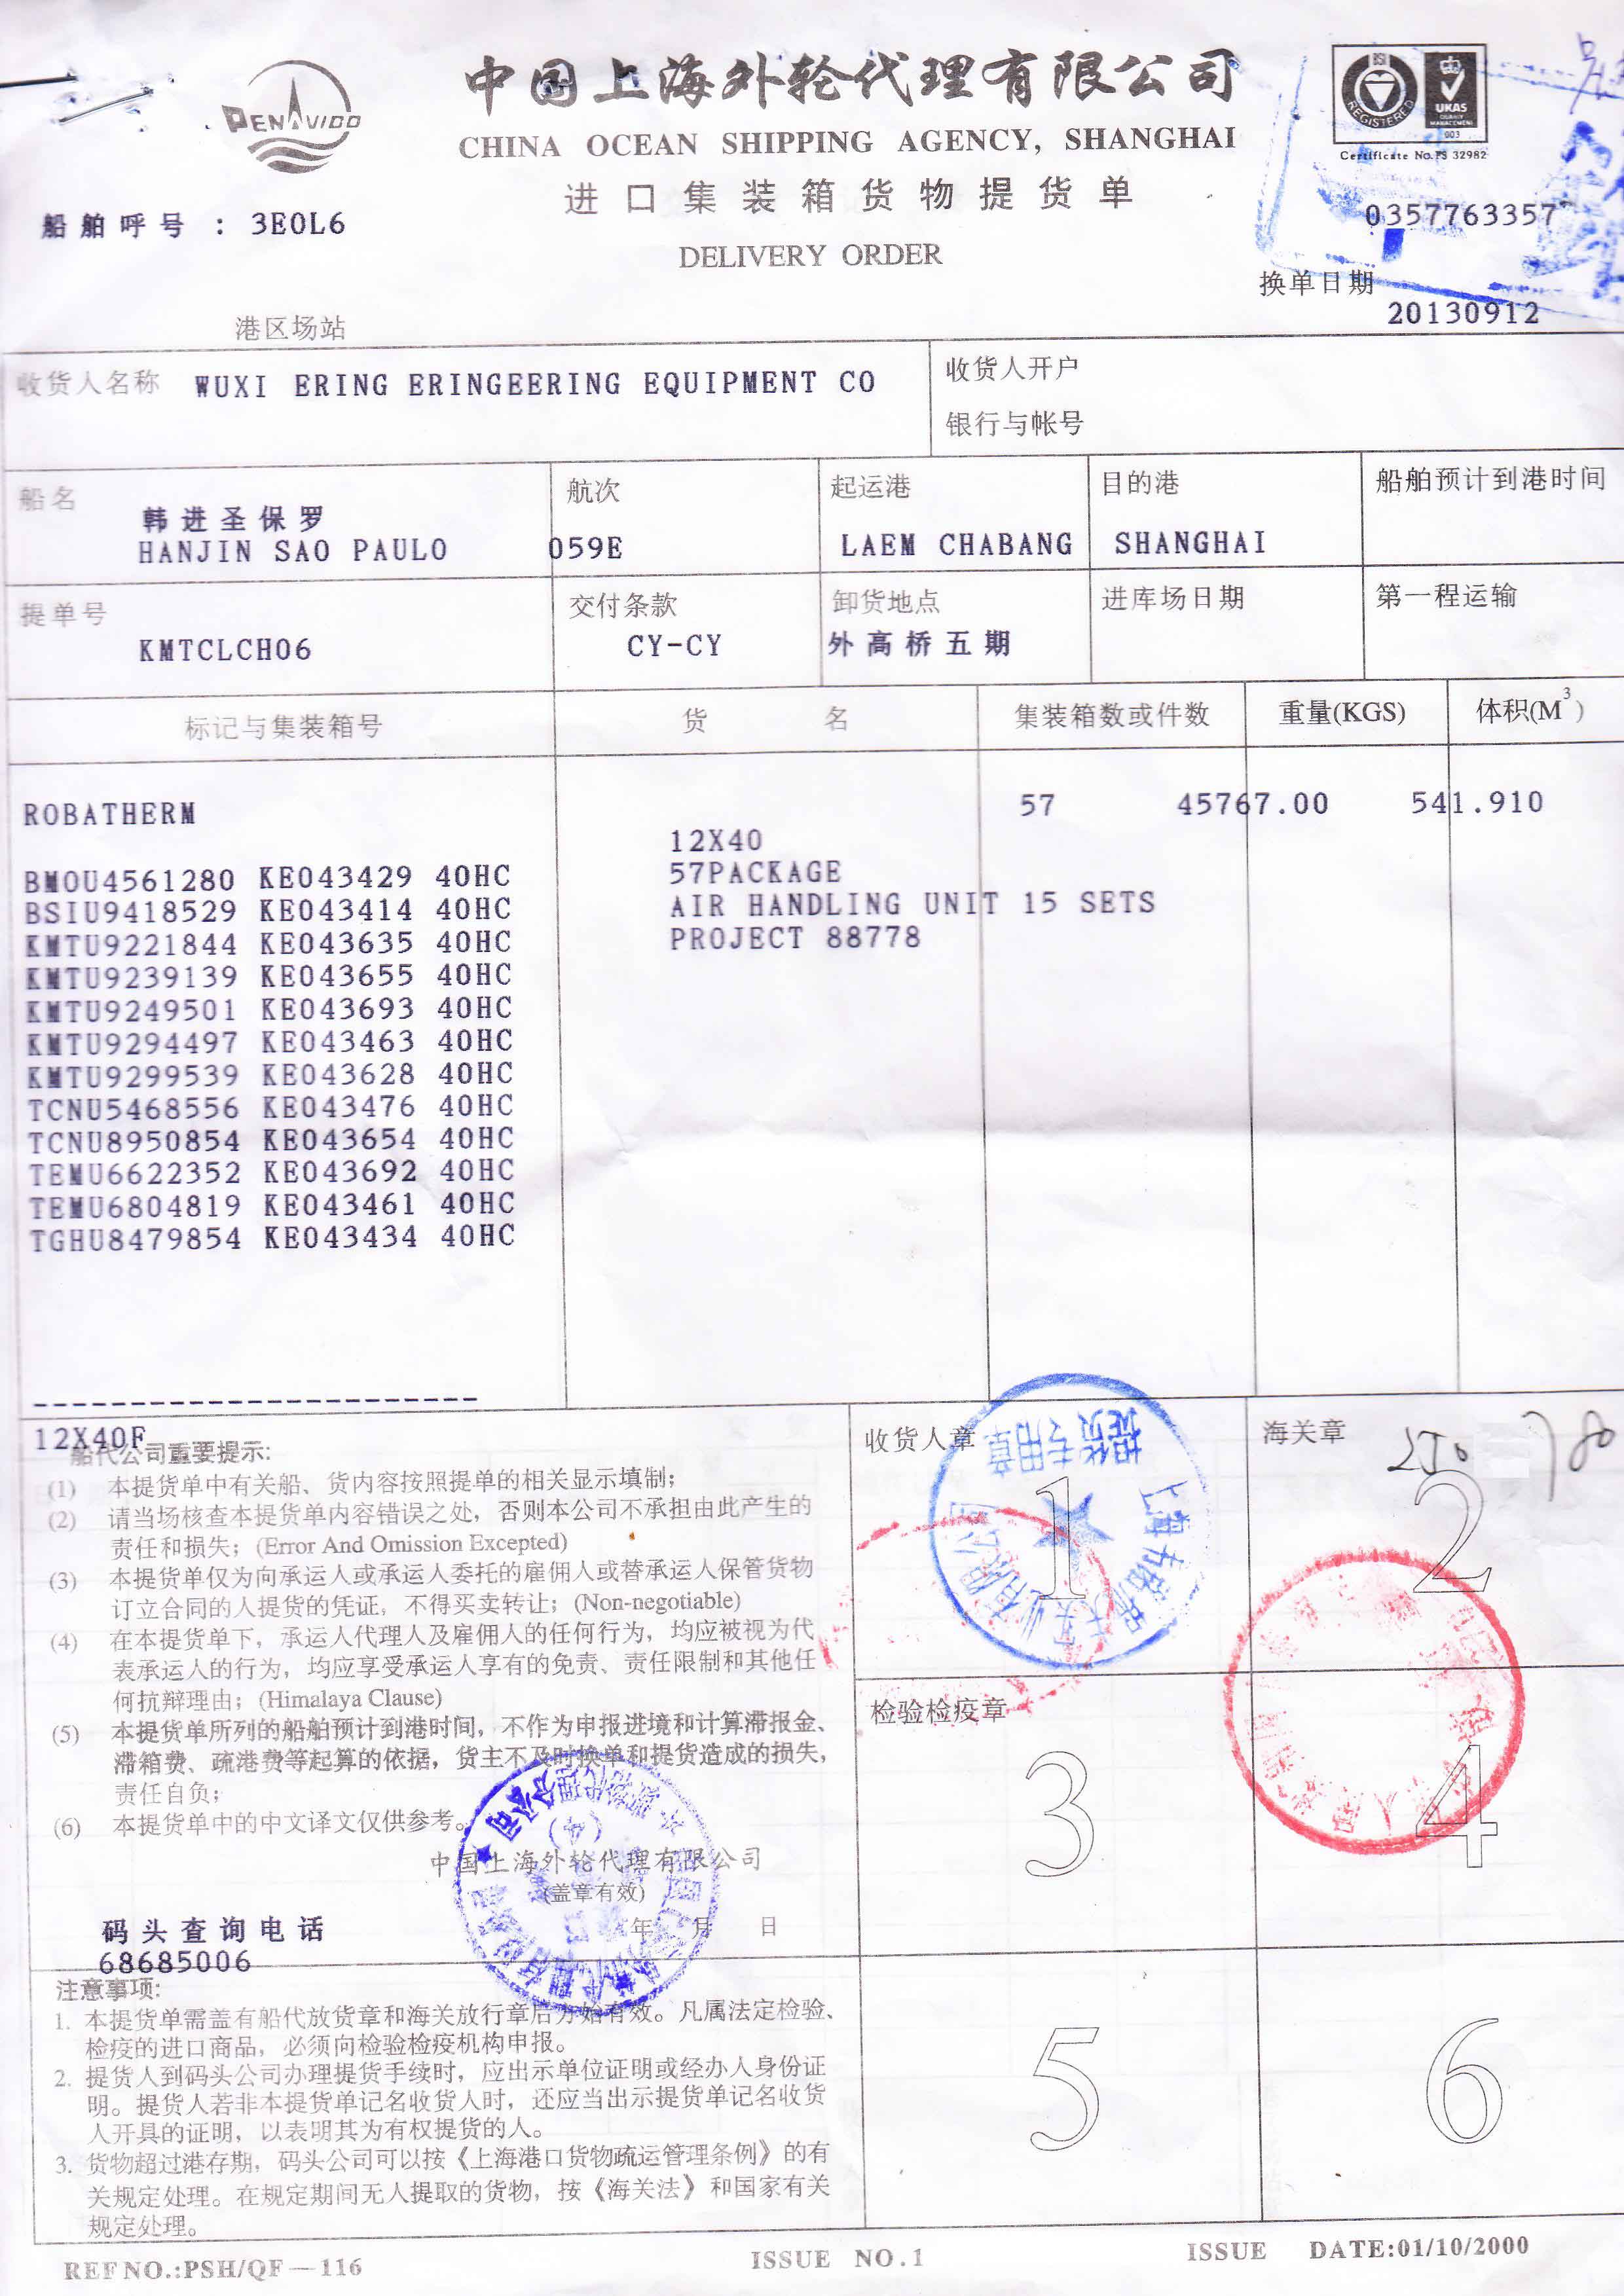 PENAVICO
中国上海外轮代理有限公司
CHINA OCEAN SHIPPING AGENCY, SHANGHAI
进口集装箱货物提货单
DELIVERY ORDER
BSI
REGISTERED
UKAS
QUALITY
MANAGEMENT
003
Certificate No. FS 32982
船舶呼号 : 3EOL6
0357763357
换单日期
20130912
港区场站
收货人名称 WUXI ERING ERINGEERING EQUIPMENT CO
收货人开户
银行与帐号
船名
韩进圣保罗
HANJIN SAO PAULO
航次
059E
起运港
LAEM CHABANG
目的港
SHANGHAI
船舶预计到港时间
提单号
KMTCLCH06
交付条款
CY-CY
卸货地点
外高桥五期
进库场日期
第一程运输
标记与集装箱号 货名 集装箱数或件数 重量(KGS) 体积(M3)
ROBATHERM
57 45767.00 541.910
12X40
57PACKAGE
AIR HANDLING UNIT 15 SETS
PROJECT 88778
BMOU4561280 KE043429 40HC
BSIU9418529 KE043414 40HC
KMTU9221844 KE043635 40HC
KMTU9239139 KE043655 40HC
KMTU9249501 KE043693 40HC
KMTU9294497 KE043463 40HC
KMTU9299539 KE043628 40HC
TCNU5468556 KE043476 40HC
TCNU8950854 KE043654 40HC
TEMU6622352 KE043692 40HC
TEMU6804819 KE043461 40HC
TGHU8479854 KE043434 40HC
12X40F
船代公司重要提示:
(1) 本提货单中有关船、货内容按照提单的相关显示填制;
(2) 请当场核查本提货单内容错误之处，否则本公司不承担由此产生的
责任和损失; (Error And Omission Excepted)
(3) 本提货单仅为向承运人或承运人委托的雇佣人或替承运人保管货物
订立合同的人提货的凭证，不得买卖转让; (Non-negotiable)
(4) 在本提货单下，承运人代理人及雇佣人的任何行为，均应被视为代
表承运人的行为，均应享受承运人享有的免责、责任限制和其他任
何抗辩理由; (Himalaya Clause)
(5) 本提货单所列的船舶预计到港时间，不作为申报进境和计算滞报金、
滞箱费、疏港费等起算的依据，货主不及时换单和提货造成的损失，
责任自负;
(6) 本提货单中的中文译文仅供参考。
中国上海外轮代理有限公司
(盖章有效)
年 月 日
码头查询电话
68685006
收货人章
1
提货专用章
海关章
2
检验检疫章
3
4
5
6
注意事项:
1. 本提货单需盖有船代放货章和海关放行章后方始有效。凡属法定检验、
检疫的进口商品，必须向检验检疫机构申报。
2. 提货人到码头公司办理提货手续时，应出示单位证明或经办人身份证
明。提货人若非本提货单记名收货人时，还应当出示提货单记名收货
人开具的证明，以表明其为有权提货的人。
3. 货物超过港存期，码头公司可以按《上海港口货物疏运管理条例》的有
关规定处理。在规定期间无人提取的货物，按《海关法》和国家有关
规定处理。
REFNO.:PSH/QF—116
ISSUE NO.1
ISSUE DATE:01/10/2000